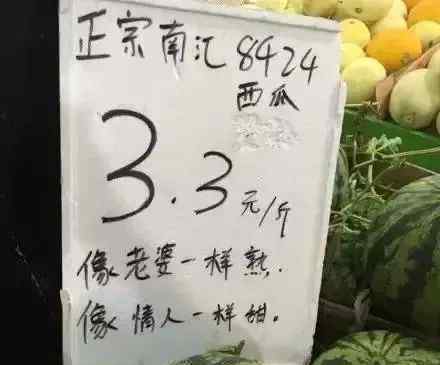 正宗南汇8424
西瓜
3.3元/斤
像老婆一样熟.
像情人一样甜.